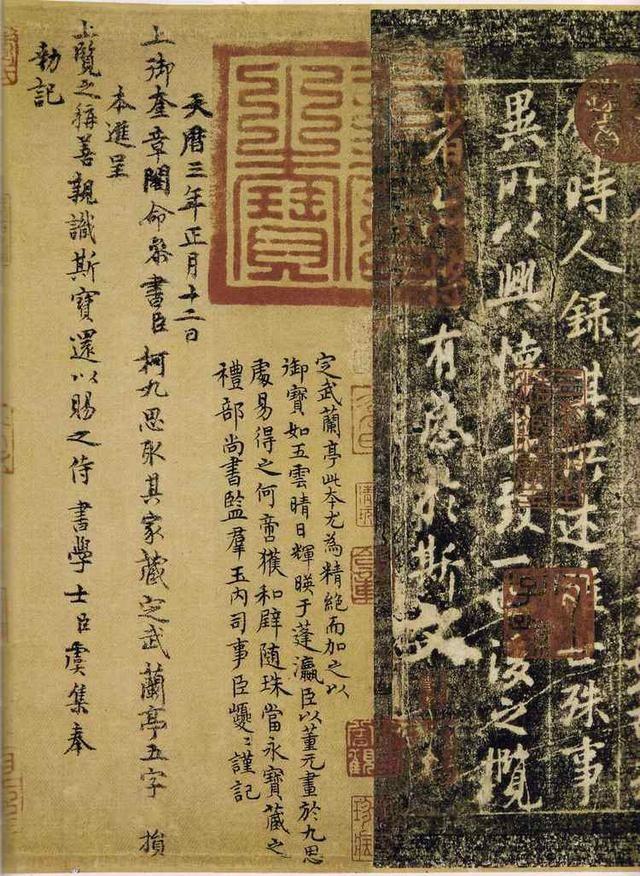 時人録其所述雖世殊事
異所以興懷其致一也後之攬
者亦將有感於斯文
定武蘭亭此本尤為精絶而加之以
御寶如五雲晴日輝暎于蓬瀛臣以董元畫於九思
處易得之何啻獲和璧随珠當永寶藏之
禮部尚書監羣玉内司事臣巙〻謹記
天曆三年正月十二日
上御奎章閣命叅書臣柯九思取其家藏定武蘭亭五字損
本進呈
上覽之稱善親識斯寶還以賜之侍書學士臣虞集奉
勑記